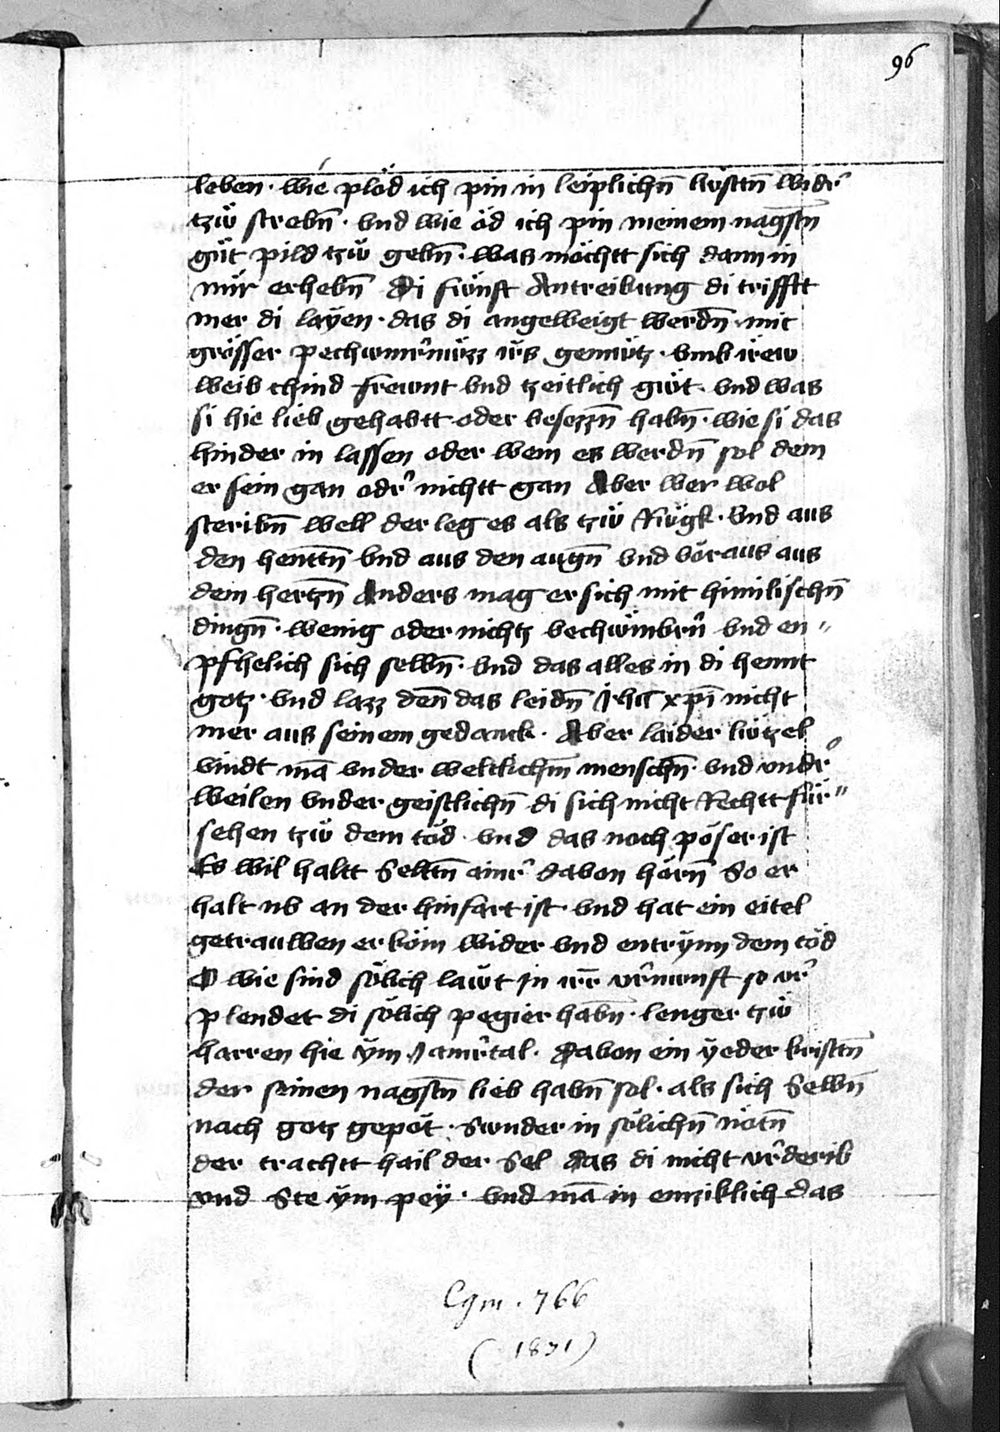 96
leben · wie plöd ich pin in leiplichn̄ lüsttn̄ widr̉
tzü strebn̄ · vnd wie öd ich pin meinem nagstn̄
güt pild tzü gebn̄ · was möchtt sich dann in
mir erhebn̄ Di fünft Antreibung di trifftt
mer di layen · das di angeweigt werdn̄ · mit
grösser pechumr̉nüzz irs gemütz · vmb irew
weib chind frewnt vnd tzeitlich güt · vnd was
si hie lieb gehabtt oder besezzn̄ habn̄ · wie si das
hinder in lassen oder wem es werdn̄ sol dem
er sein gan odr̉ nichtt gan Aber wer wol
steribn̄ well der leg es als tzü Rügk · Vnd aus
den henttn̄ vnd aus den augn̄ vnd vöraus aus
dem hertzn̄ Anders mag er sich mit himlischn̄
dingn̄ · wenig oder nichtz bechümbrn̄ vnd en〃
pfhelich sich selbn̄ · vnd das alles in di hennt
gotz · vnd lazz den̄ das leidn̄ Jhū xp̄i nicht
mer aus seinem gedanck · Aber laider lützel
vindt mā vnder weltlichn̄ menschn̄ · vnd vndr̉
weilen vnder geistlichn̄ di sich nicht Rechtt für〃
sehen tzü dem töd · vnd das noch pöser ist
Es wil haltt Seltn̄ ainr̉ davon hörn̄ So er
halt nv an der hinfart ist · vnd hat ein eitel
getrauwen er köm wider vnd entrynn dem töd
O wie sind sölich läwt in irr̄ vr̉nunft so vr̉
plendet di sölich pegier habn̄ · lenger tzü
harren hie ÿm Jamr̉tal · Davon ein ÿeder kristn̄
der seinen nagstn̄ lieb habn̄ sol · als sich Selbn̄
nach gotz gepöt · Sunder in sölichn̄ nötn̄
der trachtt hail der Sel das di nicht vr̉derib
vnd Ste ÿm peÿ · vnd mā in emziklich das
Cgm. 766
(1871)